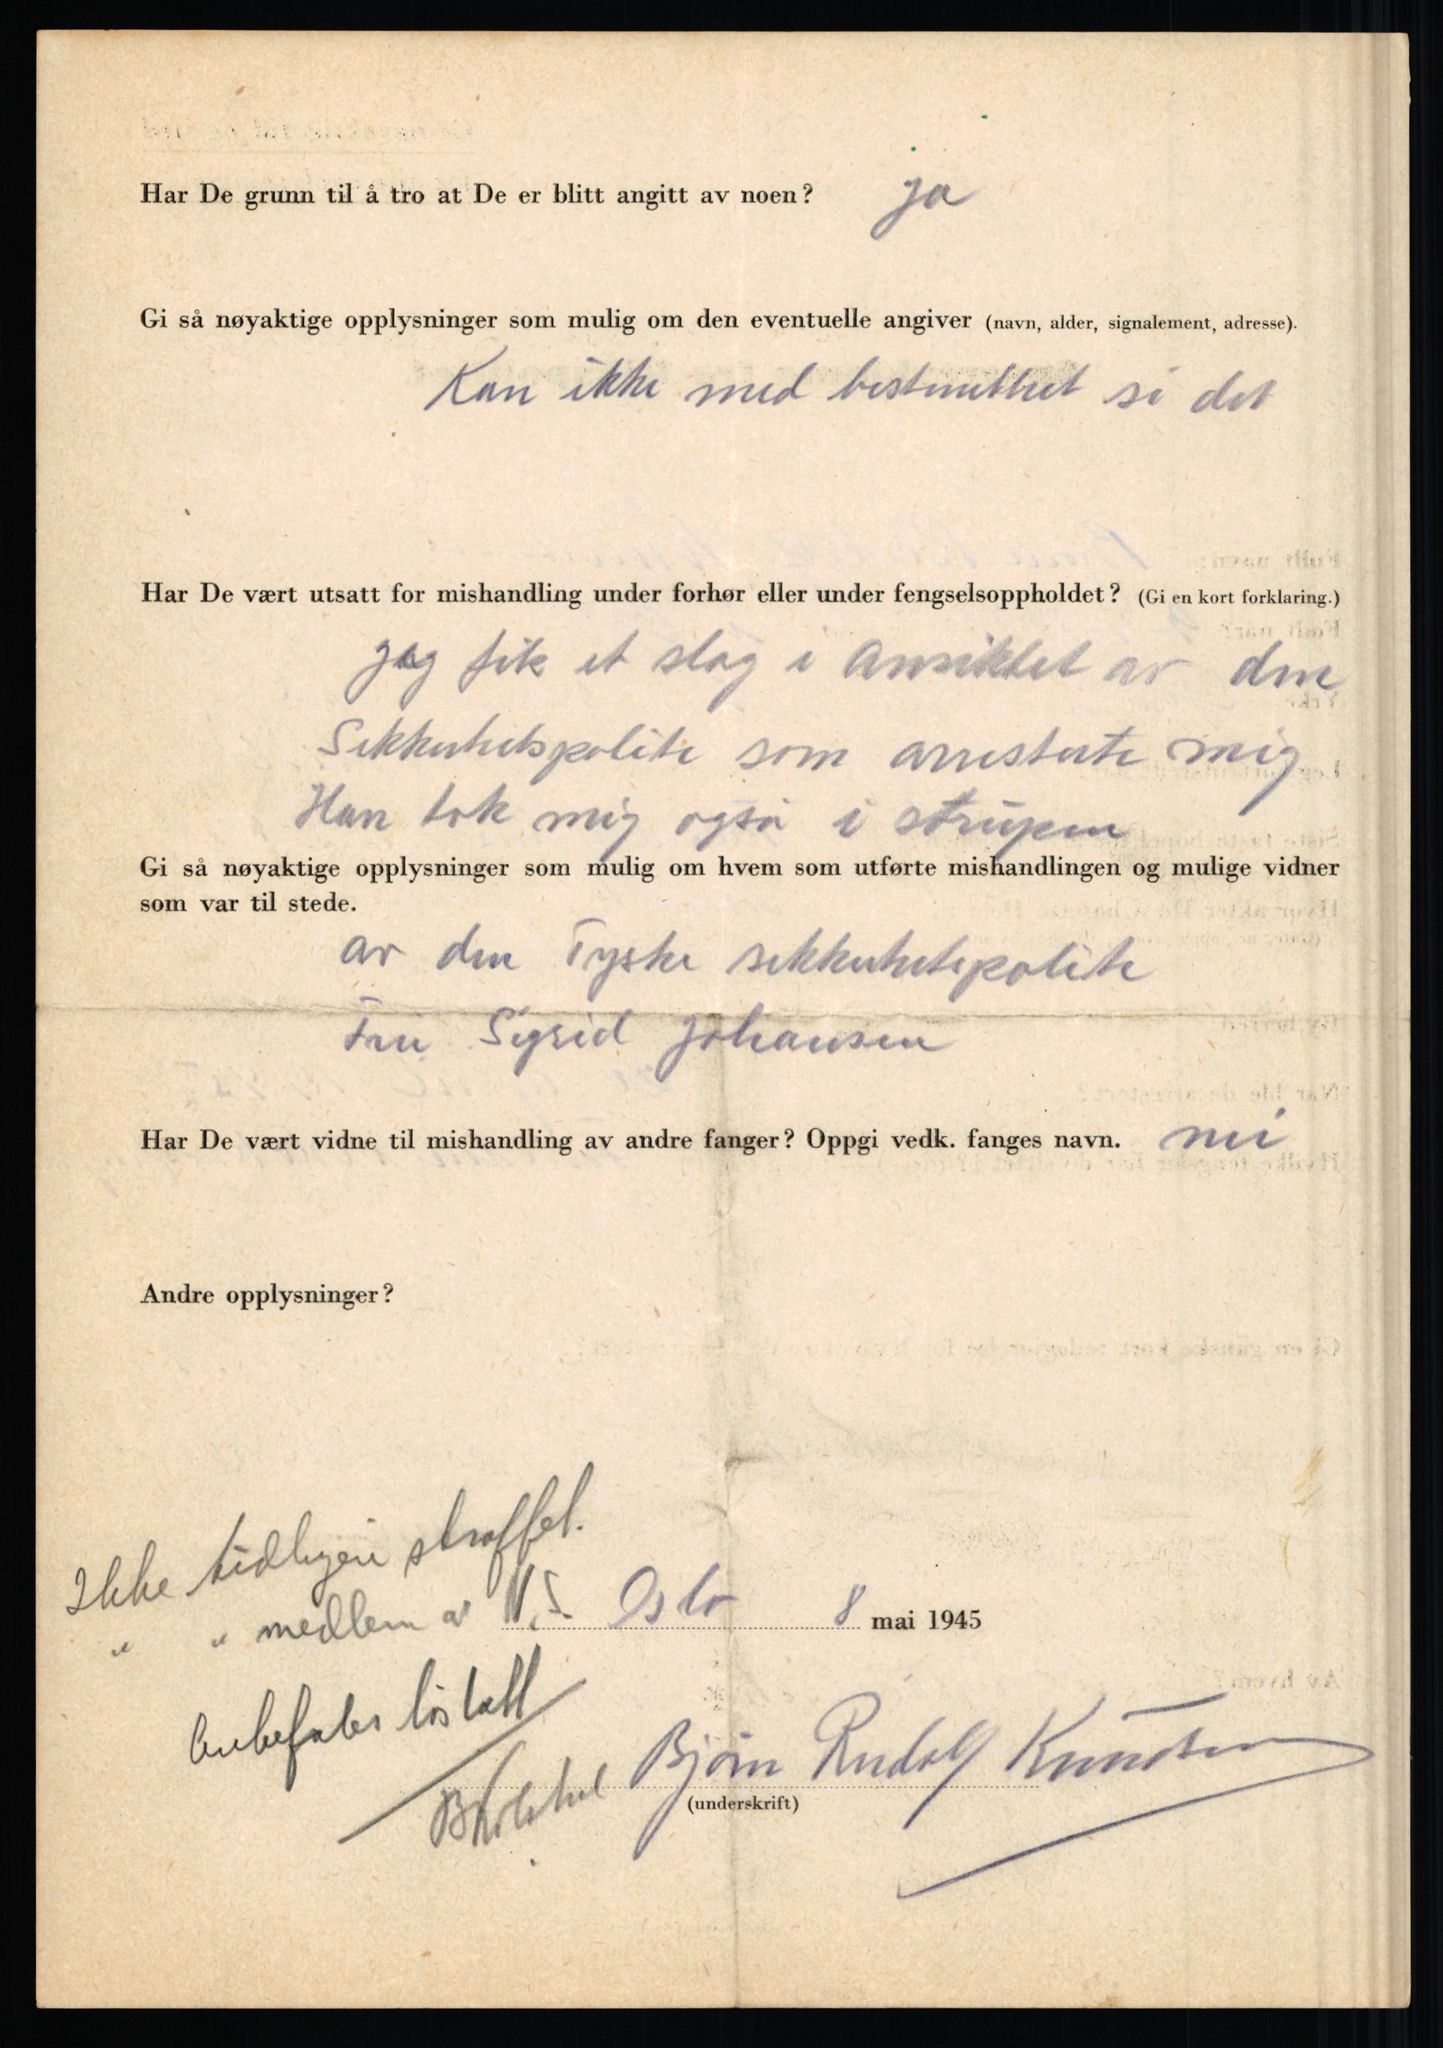 Har De grunn til å tro at De er blitt angitt av noen? ja
Gi så nøyaktige opplysninger som mulig om den eventuelle angiver (navn, alder, signalement, adresse).
Kan ikke med bestemthet si det
Har De vært utsatt for mishandling under forhør eller under fengselsoppholdet? (Gi en kort forklaring.)
Jeg fik et slag i Ansiktet av den
Sikkerhetspoliti som arresterte mig
Han tok mig også i strupen
Gi så nøyaktige opplysninger som mulig om hvem som utførte mishandlingen og mulige vidner
som var til stede.
av den Tyske sikkerhetspoliti
Fru Sigrid Johansen
Har De vært vidne til mishandling av andre fanger? Oppgi vedk. fanges navn. nei
Andre opplysninger?
Ikke tidligere straffet.
" " medlem av N.S.
Oslo 8 mai 1945
Anbefales løslatt
Bjørn Rudolf Knudsen
(underskrift)